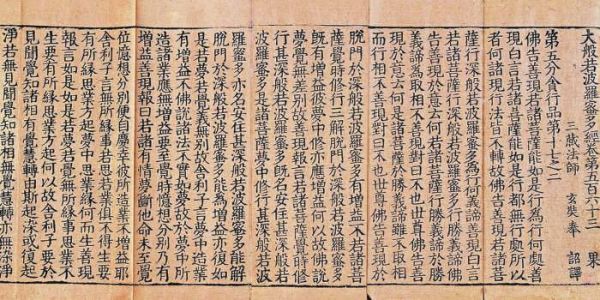 大般若波羅蜜多經卷第五百六十三 果
三藏法師 玄奘奉 詔譯
第五分貪行品第十七之二
佛告善現若諸菩薩能如是行為行何處善
現白言若諸菩薩能如是行都無行處所以
者何諸現行法皆不轉故佛告善現若諸菩
薩行深般若波羅蜜多為行何諦善現白言
若諸菩薩行深般若波羅蜜多行勝義諦佛
告善現於意云何若諸菩薩行勝義諦於勝
義諦為取相不善現對曰不也世尊佛告善
現於意云何若諸菩薩於勝義諦雖不取相
而行相不善現對曰不也世尊佛告善現
脫門於深般若波羅蜜多有增益不若諸菩
薩覺時修行三解脫門於深般若波羅蜜多
既有增益彼夢中修亦應增益何以故佛說
夢覺無差別故善現報言若諸菩薩覺時修
行甚深般若波羅蜜多既名安住甚深般若
波羅蜜多是諸菩薩夢中修行甚深般若波
羅蜜多亦名安住甚深般若波羅蜜多能解
脫門於深般若波羅蜜多能為增益亦復如
是若夢若覺義無別故舍利子言夢中造業
有增益不佛說諸法不實如夢故於夢中
造諸業應無增益要至覺時憶想分別乃有
增益善現報曰若諸有情夢斷他命未至覺
位憶想分別便自慶幸彼所造業不增益耶
舍利子言無所緣事若思若業俱不得生要
有所緣思業方起夢中思業緣何而生善現
報言如是如是若夢若覺無所緣事思業不
生要有所緣思業方起何以故舍利子要於
見聞覺知諸相有覺慧轉由斯起染或復起
淨若無見聞覺知諸相無覺慧轉亦無染淨